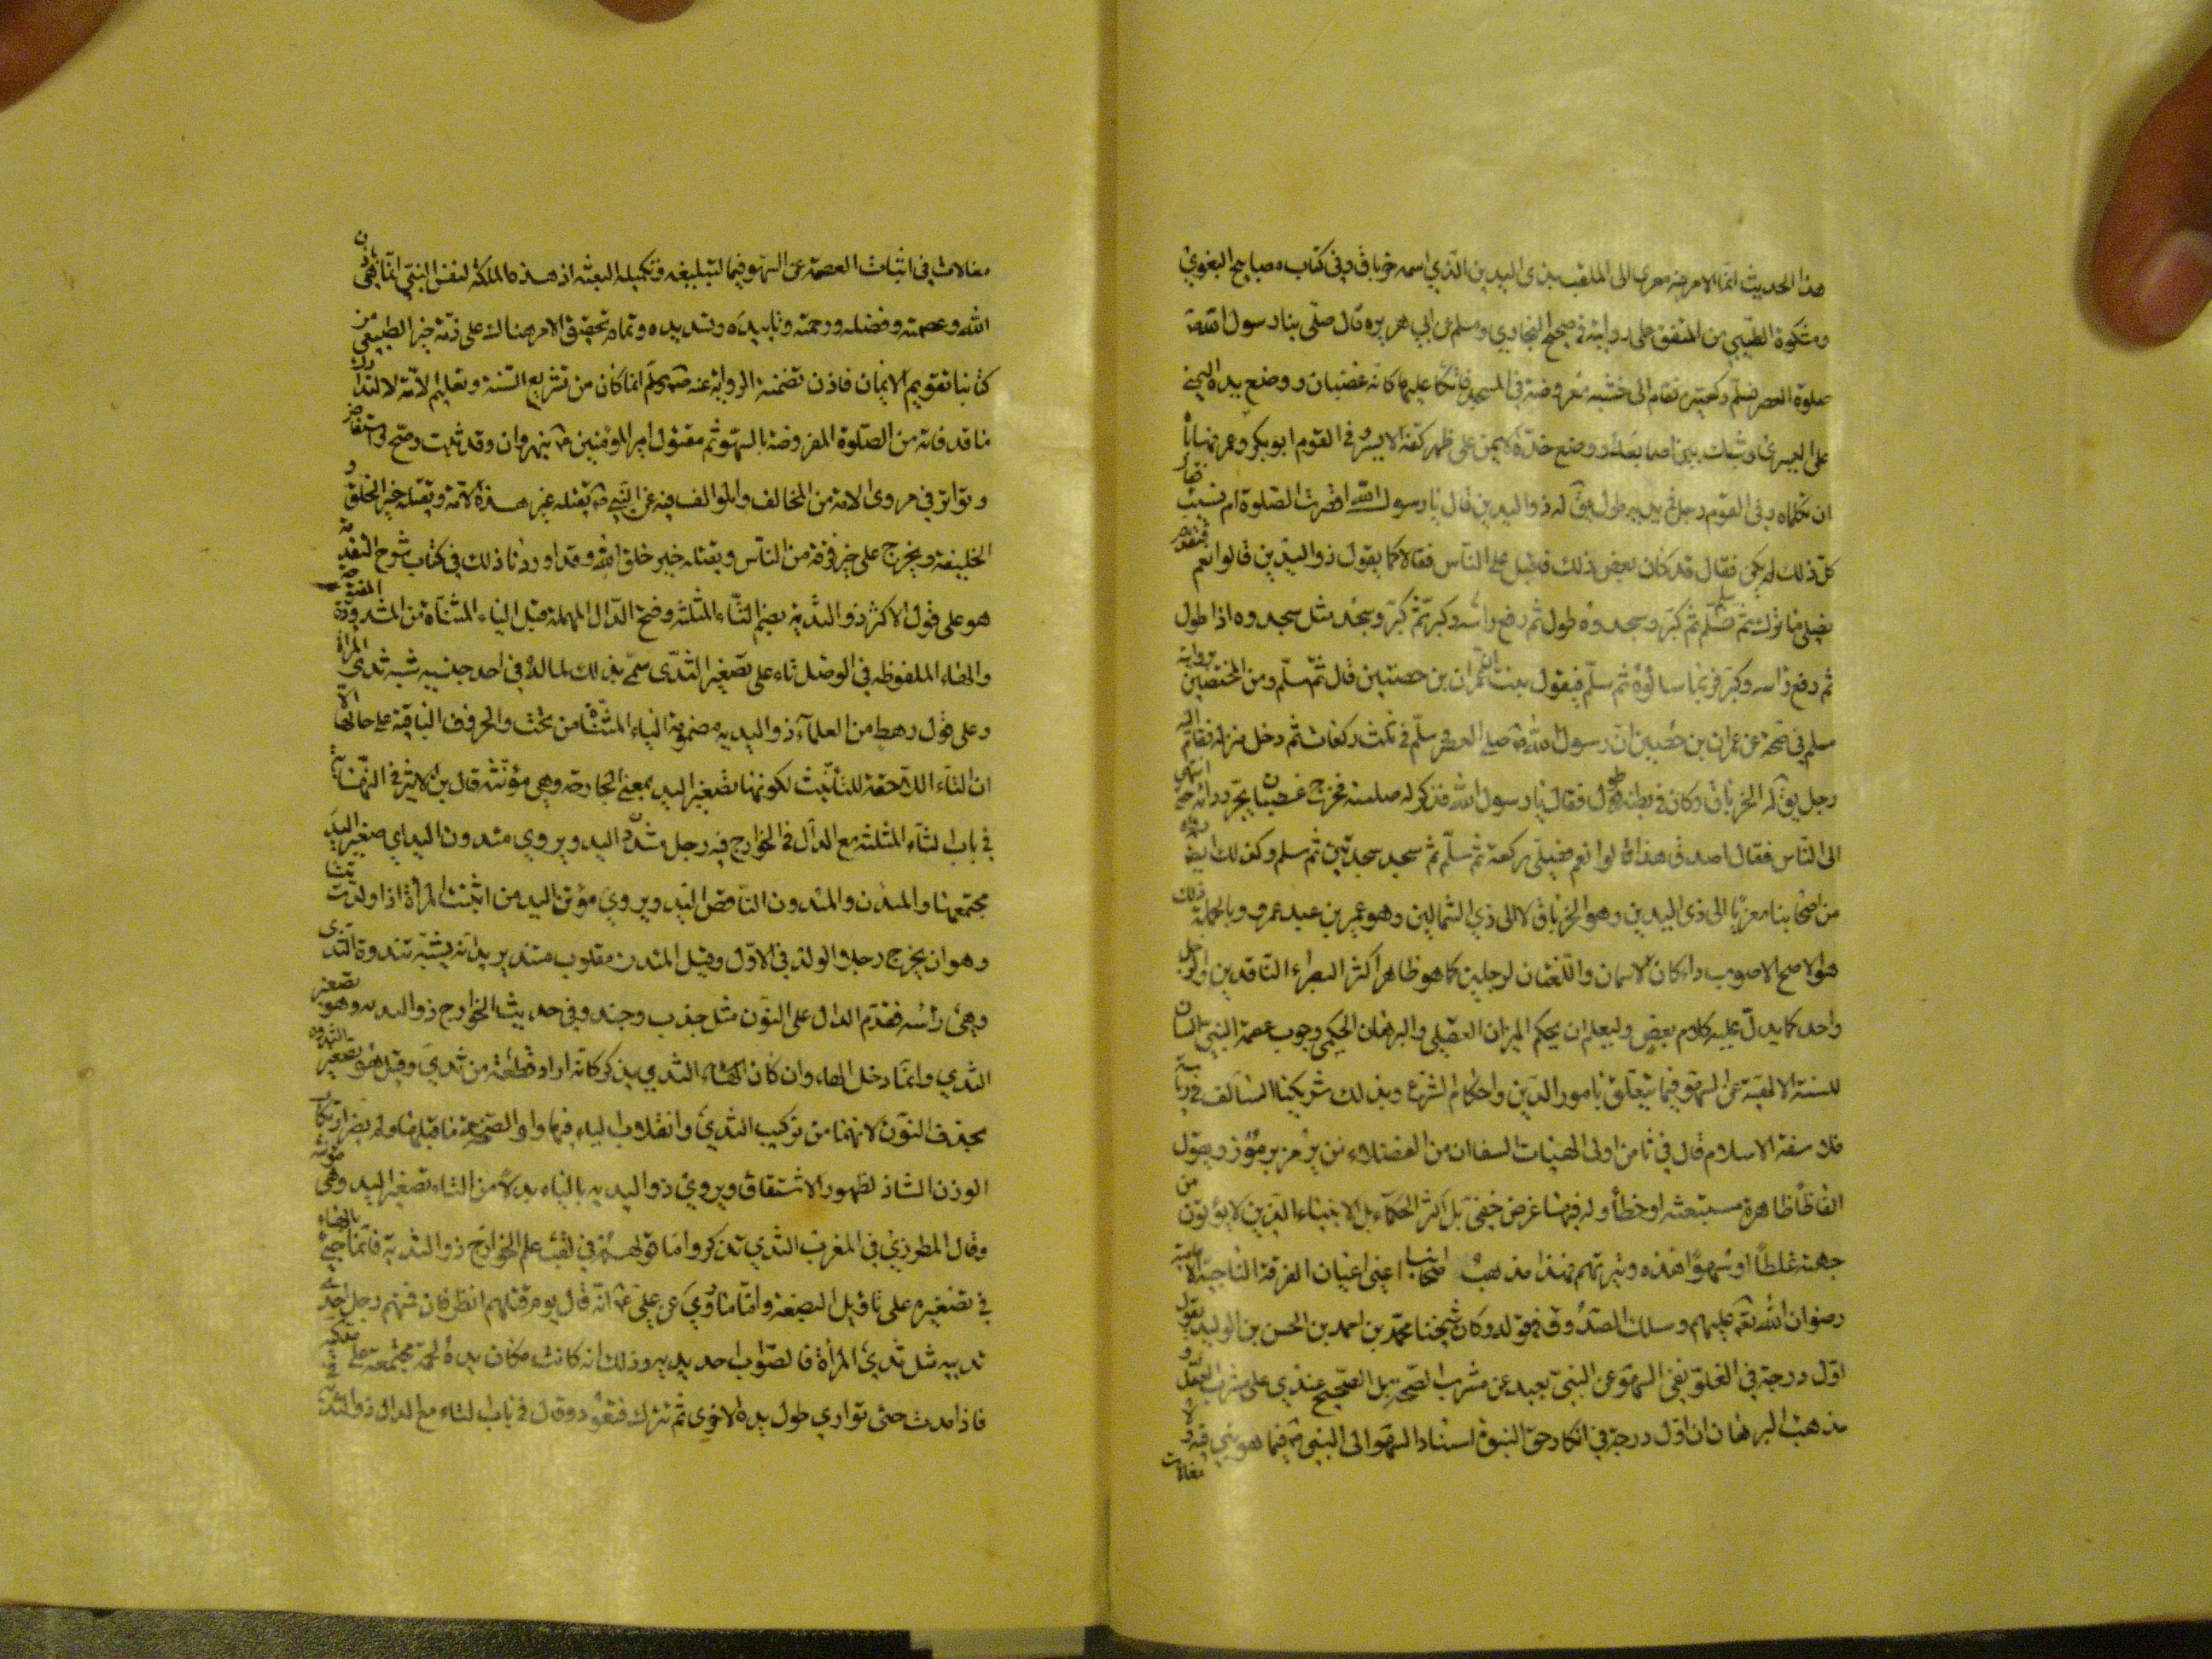 هذا الحديث انما الامر فيه معرى الى الملقب بذى اليدين الذي اسمه خرباق وفي كتاب مصابيح البغوي
ومشكوة الطيبي من المتفق على روايته في صحيح البخاري ومسلم عن ابي هريره قال صلى بنا رسول الله ص
صلوة العصر فسلم في ركعتين فقام الى خشبه معروضة في المسجد فاتكا عليها كانه غضبان ووضع يده اليمنى
على اليسرى وشبك بين اصابعه ووضع خده الايمن على ظهر كفه الايسر وفي القوم ابوبكر وعمر فهاباه
ان يكلماه وفي القوم رجل في يديه طول يق له ذو اليدين قال يا رسول الله اقصرت الصلوة ام نسيت فقال
كل ذلك لم يكن فقال قد كان بعض ذلك فاقبل على الناس فقال اكما يقول ذو اليدين قالوا نعم فتقدم
فصلى ما ترك ثم سلم ثم كبر وسجد وه طول ثم رفع راسه وكبر ثم كبر وسجد مثل سجدوه اذا طول
ثم رفع راسه وكبر فربما سالوه ثم سلم فيقول نبئت ان عمران بن حصين قال ثم سلم ومن المختصين برواية
مسلم في صحيحه عن عمران بن حصين ان رسول الله ص صلى العصر وسلم في ثلث ركعات ثم دخل منزله فقام اليه
رجل يق له الخرباق وكان في يده طول فقال يا رسول الله فذكر له صنيعه فخرج غضبان يجر ردائه حتى انتهى
الى الناس فقال اصدق هذا قالوا نعم فصلى ركعة ثم سلم ثم سجد سجدتين ثم سلم وكذلك ايض رواه
من اصحابنا معزيا الى ذى اليدين وهو الخرباق لا الى ذي الشمالين وهو عمير بن عبد عمرو وبالجملة ذلك
هو الاصح الاصوب واء كان الاسمان واللقبان لرجلين كما هو ظاهر اكثر البصراء الناقدين او لرجل
واحد كما يدل عليه كلام بعض وليعلم ان يحكم الميزان العقلي والبرهان الحكمي وجوب عصمة النبي السان
للسنة الالهية عن السهو فيما يتعلق بامور الدين واحكام الشرع وبذلك شريكنا السالف في رياسة
فلاسفة الاسلام قال في ثامن اولى الهيات الشفا ان من الفضلاء من يرمز برموز ويقول
الفاظا ظاهرة مستبشعة او خطأ وله فيها غرض خفي بل اكثر الحكماء بل الانبياء الذين لا يؤتون من
جهة غلطا او سهوا هذه وتيرتهم فهذا مذهب اصحابنا اعني اعيان الفرقة الناجية الامامية
رضوان الله تع عليهم ومسلك الصدوق في قوله وكان شيخنا محمد بن احمد بن الحسن بن الوليد يقول
اول درجة في الغلو نفي السهو عن النبي بعيد عن مشرب الصحة بل الصحيح عندي على مشرب العقل و
مذهب البرهان ان اول درجة في انكار حق النبوة اسناد السهو الى النبي ص فيما هو نبي فيه ولا
مغالات
مغالات في اثبات العصمة عن السهو فيما لتبليغه وتكميله البعثه اذ هذه الملكة لنفس النبي انما هي باذن
الله وعصمته وفضله ورحمته وتاييده وتسديده وتمام تحقيق الامر هناك على ذمة خبر الطبيعي من
كتابنا تقويم الايمان فاذن تضمنته الرواية عنه ص انما كان من تشريع السنة وتعليم الامة لا لتدارك
ما قد فاته من الصلوة المفروضة بالسهو ثم مقتول امير المؤمنين ع بنهروان وقد ثبت وصح واستفاض
وتواتر في مروى الامة من المخالف والموالف فيه عن النبي ص يقتله خير هذه الامة ويقتله خير الخلق و
الخليفة ويخرج على خير فرقة من الناس ويقتله خير خلق الله وقد اوردنا ذلك في كتاب شرح التقدمة
هو على قول الاكثر ذو الثدية بضم الثاء المثلثه وفتح الدال المهملة قبل الياء المثناة من المشدودة المفتوحة
والهاء الملفوظه في الوصل تاء على تصغير الثدى سمي بذلك لما له في احد جنبيه شبه ثدي المرأة
وعلى قول رهط من العلماء ذو اليدية مضمومة الياء المثناة من تحت والحروف الباقية على حالها الا
ان التاء اللاحقة للتأنيث لكونها تصغير اليد بمعنى الجارحة وهي مؤنثه قال ابن الاثير في النهاية
في باب الثاء المثلثه مع الدال في الخوارج فيه رجل مثدن اليد ويروي مثدون اليد اي صغير اليد
مجتمعها والمثدن والمثدون الناقص اليد ويروي مؤتن اليد من ايتنت المراة اذا ولدت يتنا
وهو ان يخرج رجلا الولد في الاول وقيل المثدن مقلوب مثند يريد انه يشبه ثندوة الثدى
وهي رأسه فقدم الدال على النون مثل جذب وجبذ وفي حديث الخوارج ذو الثديه وهو تصغير
الثدي وانما دخل الهاء وان كان الثدي يذكر كانه اراد قطعة من ثدي وقيل هو تصغير الثندوه
بحذف النون لانها من تركيب الثدي وانقلاب الياء فيها واوا لضمة ما قبلها ولم يضر ارتكاب
الوزن الشاذ لظهور الاشتقاق ويروي ذو اليديه بالياء بدلا من الثاء تصغير اليد وهي مؤنثه
وقال المطرزي في المغرب الثدي تذكر واما قولهم في لقب علم الخوارج ذو الثديه فانما جئ بالهاء
في تصغيره على تاويل البضعة واما ما روي عن علي ع انه قال يوم قتلهم انظروا فان فيهم رجل احد
ثدييه مثل ثدي المراة فالصواب احد يديه وذلك انه كانت مكان يده لحمة مجتمعة على منكبه
فاذا مدت حتى توازي طول يده الاخرى ثم تترك فتعود وقال في باب الثاء مع الدال ذو الثدية